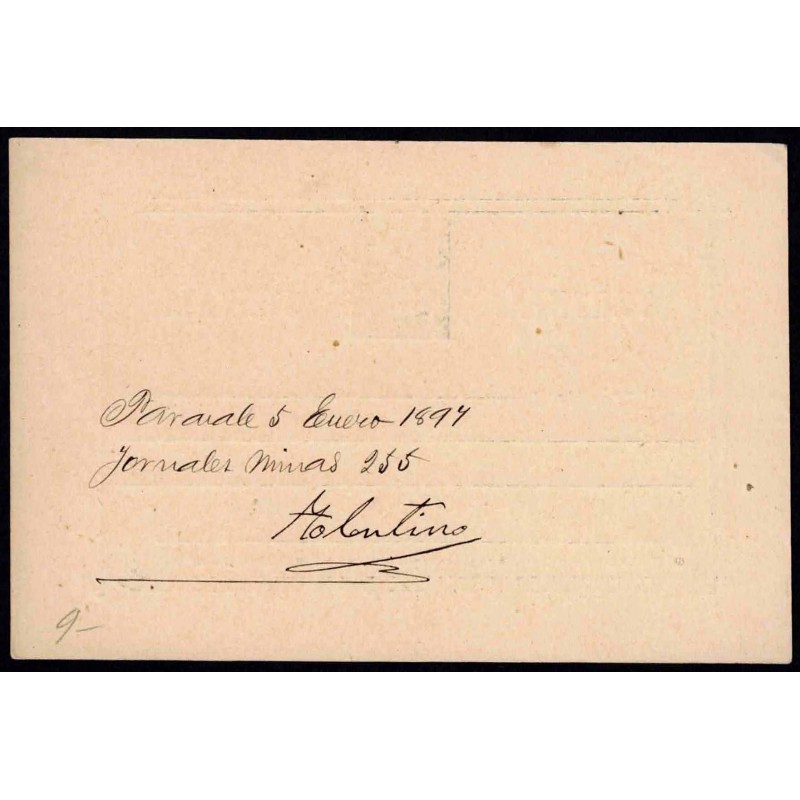 Pararale 5 Enero 1897
Jornales Minas 255
Tolentino
9-